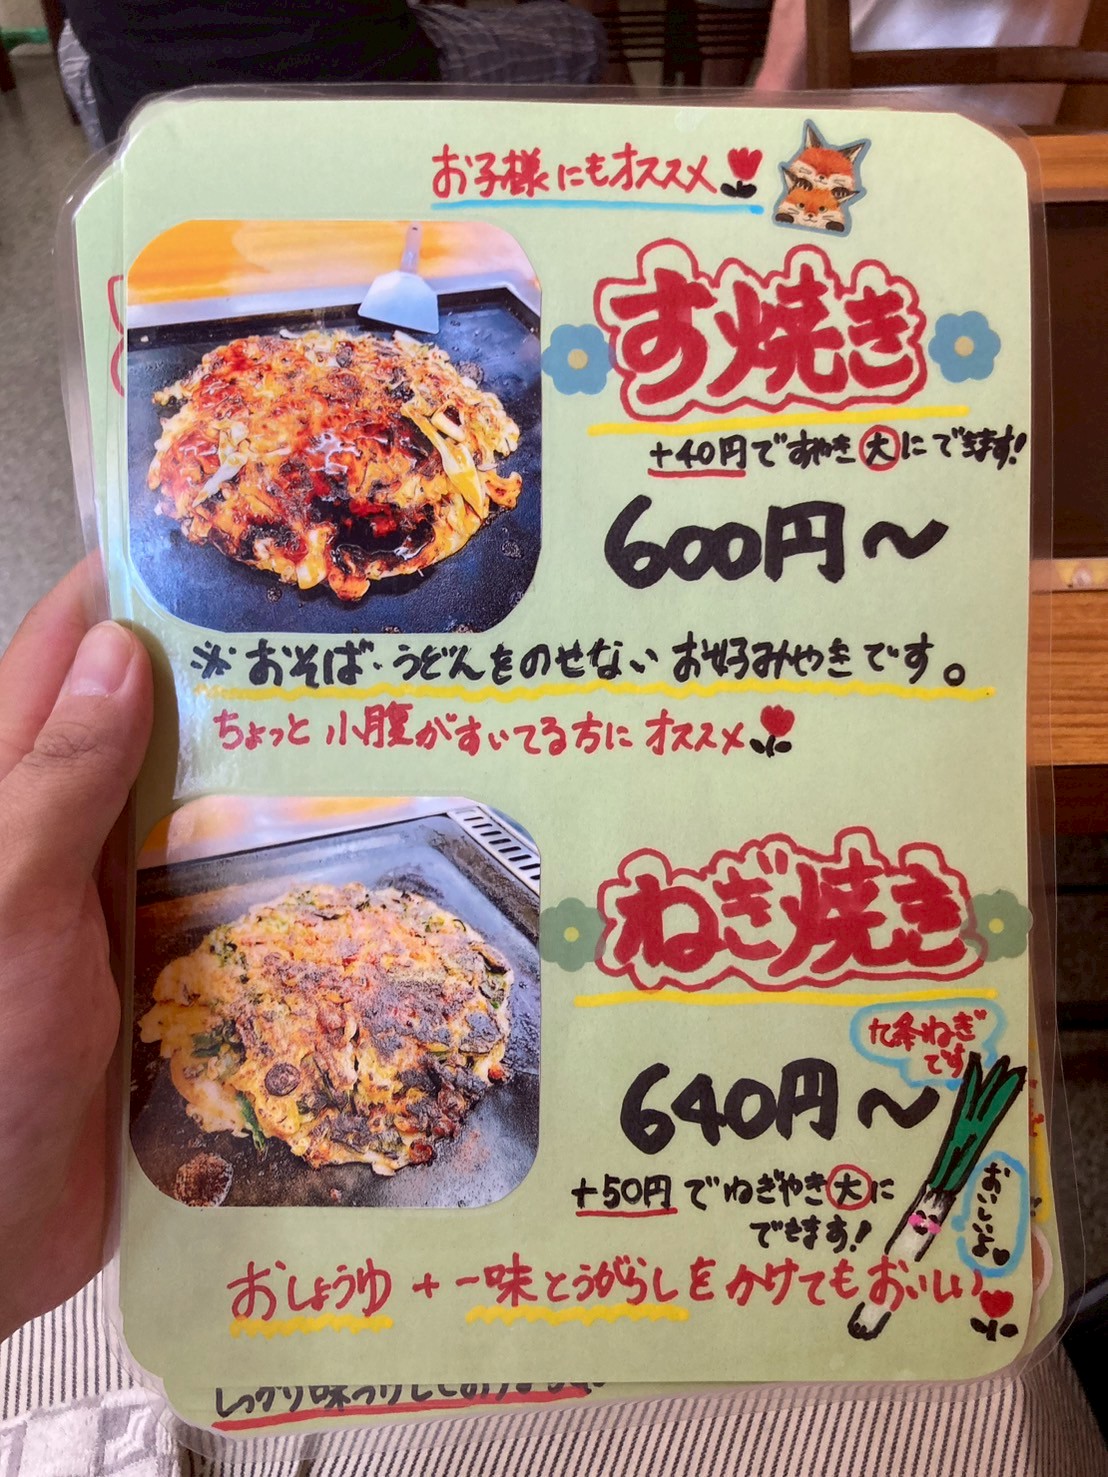 お子様にもオススメ
す焼き
+40円ですやき大にできます!
600円～
※おそば・うどんをのせないお好みやきです。
ちょっと小腹がすいてる方にオススメ
ねぎ焼き
九条ねぎ
です
640円～
+50円でねぎやき大に
できます!
おいしいよ
おしょうゆ+一味とうがらしをかけてもおいしい